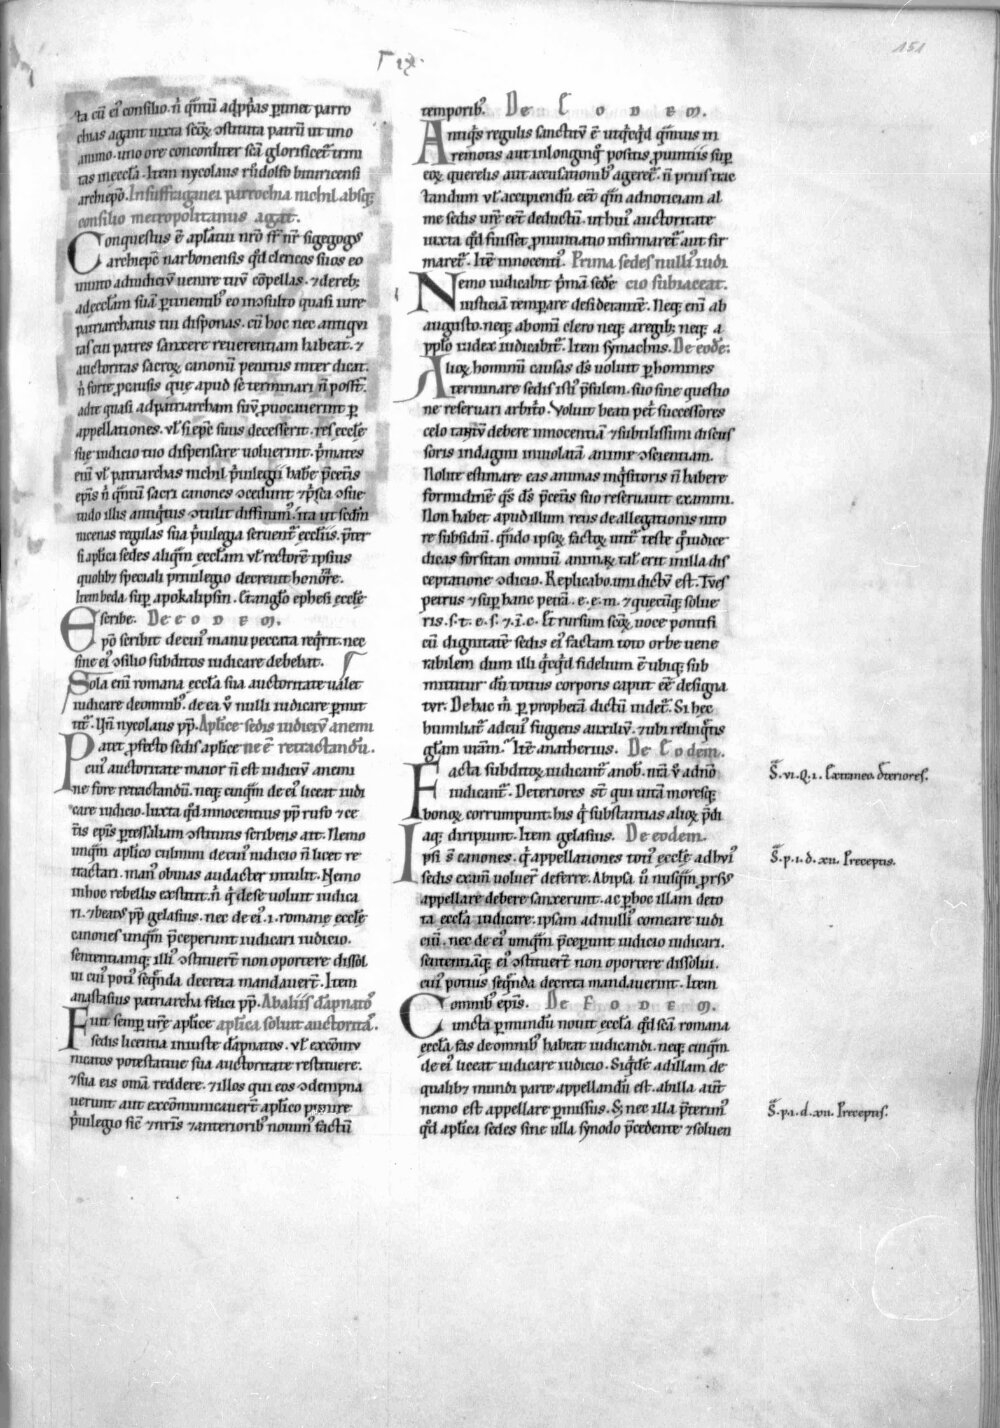 151
ta cū ei᾽ consilio. n̄ q̄ntū ad pp̄as ꝑtinet parro
chias agant iuxta scōꝝ ↄstituta patrū ut uno
animo. uno ore concorditer sc̄a glorificet᷑ trini
tas in eccl̄a. Item nycolaus rodolfo bituricensi
archiep̄o. In suffraganei parrochia nichil absq;
consilio metropolitanus agat.
Conquestus ē ap̄latui nr̄o fr̄ nr̄ sigegod᾽
archiep̄c narbonensis qd̄ clericos suos eo
inuito ad iudiciū uenire tuū cōpellas. ⁊ de reb;
ad eccl̄am suā ꝑtinentib᾽ eo inↄsulto quasi iure
patriarchatus tui disponas. cū hoc nec antiqui
tas cui patres sanxere reuerentiam habeat. ⁊
auctoritas sacroꝝ canonū penitus interdicat.
n̄ forte ꝓ causis que apud se terminari n̄ post̄.
ad te quasi ad patriarcham suū ꝓuocauerint ꝑ
appellationes. ul̄ si ep̄c suus decesserit. res eccl̄e
sue iudicio tuo dispensare uoluerint. p̄mates
eni᷑ ul̄ patriarchas nichil p̄uilegii habe᷑ p̄ ceteris
ep̄is n̄ q̄ntū sacri canones ↄcedunt ⁊ p̄sca ↄsue
tudo illis antiquitus ↄtulit diffinim᾽. ita ut scdm̄
nicenas regulas sua p̄uilegia seruent᷑ eccl̄iis. p̄ter
si ap̄lica sedes aliq̄m eccl̄am ul̄ rectorē ipsius
quolib; speciali priuilegio decreuit honor̄e.
Item beda. sup̄ apokalipsin. Et anglo ephesi eccl̄e
scribe. De eodem.
Ep̄o scribit de cui᾽ manu peccata req̄rit. nec
sine ei᾽ ↄsilio subditos iudicare debebat.
Sola eni᷑ romana eccl̄a sua auctoritate ualet
iudicare de omnib᾽. de ea u᾽ nulli iudicare permit
tit᷑. Vn̄ nycolaus pp̄. Ap̄lice sedis iudiciū a nemi
Patet ꝓfecto sedis ap̄lice ne ē retractandū.
cui᾽ auctoritate maior n̄ est iudiciū a nemi
ne fore retractandū. neq; cuiq̄m de ei᾽ liceat iudi
care iudicio. Iuxta qd̄ innocentius pp̄ rufo ⁊ ce
tis ep̄is ꝑ tessaliam ↄstitutis scribens ait. Nemo
unq̄m ap̄lico culmini de cui᾽ iudicio n̄ licet re
tractari. man᾽ obuias audacter intulit. Nemo
in hoc rebellis exstitit. n̄ q̄ de se uoluit iudica
ri. ⁊ beatus pp̄ gelasius. nec de ei᾽. i. romane eccl̄e
canones unq̄m p̄ceperunt iudicari iudicio.
sententiamq; illi᾽ ↄstituer̄t non oportere dissol
ui cui᾽ poti᾽ seq̄nda decreta mandauer̄t. Item
anastasius patriarcha felici pp̄. Ab aliis dāpnatos᾽
Fuit semꝑ ur̄e ap̄lice ap̄lica soluit auctoritas᾽.
sedis licentia iniuste dāpnatos. ul̄ excōmu
nicatos potestatiue sua auctoritate restituere.
⁊ sua eis om̄ia reddere. ⁊ illos qui eos ↄdempna
uerunt aut excōmunicauer̄t ap̄lico punire
p̄uilegio sic̄ ⁊ nr̄is ⁊ anteriorib᾽ nouim᾽ factū
temporib᾽. De Eodem.
Antiq̄s regulis sanctitū ē ut q̄cq̄d q̄muis in
remotis aut in longinq̄s positis ꝓuintiis sup̄
eoꝝ querelis aut accusationib᾽ ageret᷑. n̄ prius trac
tandum ul̄ accipiendū ee᷑t q̄m ad noticiam al
me sedis ur̄e ee᷑t deductū. ut hui᾽ auctoritate
iuxta qd̄ fuisset ꝓnuntiano infirmaret᷑ aut fir
maret᷑. Itē innocenti᾽. Prima sedes nulli᾽ iudi
Nemo iudicabit p̄mā sedē cio subiaceat.
iusticiā temperare desiderantē. Neq; eni᷑ ab
augusto. neq; ab omni clero neq; a regib; neq; a
pp̄lo iudex iudicabit᷑. Item symachus. De eodē.
Alioꝝ hominū causas d̄s uoluit ꝑ homines
terminare sedis isti᾽ p̄sulem. suo sine questio
ne reseruari arbit̄o. Voluit beati pet̄ successores
celo tantū debere innocentiā ⁊ subtilissimi discus
soris indagini inuiolatā animē ↄscientiam.
Nolite estimare eas animas inq̄sitoris n̄ habere
formidinē q̄s d̄s p̄ ceteris suo reseruauit examini.
Non habet apud illum reus de allegationis nito
re subsidiū. q̄ndo ipsoꝝ factoꝝ utit᷑ teste q̄ iudice
dicas forsitan omniū animaꝝ tal᾽ erit in illa dis
ceptatione ↄdicio. Replicabo. uni dictū est. Tu es
petrus ⁊ sup̄ hanc petrā. e. e. m. ⁊ quecūq; solue
ris. s. t. e. s. ⁊. i. c. Et rursum scōꝝ uoce pontifi
cū dignitatē sedis ei᾽ factam toto orbe uene
rabilem dum illi q̄cq̄d fidelium ē ubiq; sub
mittitur dū totius corporis caput ee᷑ designa
tur. De hac m̄ ꝑ prophetā dictū uidet᷑. Si hec
humiliat᷑ ad cui᾽ fugietis auxiliū. ⁊ ubi relinq̄tis
gl̄am uram. Itē anatherius. De Eodem.
Facta subditoꝝ iudicant᷑ a nob᾽. nr̄a u᾽ ad n̄o
iudicant᷑. Deteriores st̄ qui uitā moresq;
bonoꝝ corrumpunt. his q̄ substantias alioꝝ p̄di
aq; diripiunt. Item gelasius. De eodem.
Ipsi s̄ canones. q̄ appellationes toti᾽ eccl̄e ad hui᾽
sedis exam̄ uoluer̄ deferre. Ab ipsa u᾽ nusq̄m prorsus
appellare debere sanxerunt. ac ꝑ hoc illam de to
ta eccl̄a iudicare. ipsam ad nulli᾽ comeare iudi
ciū. nec de ei᾽ umq̄m p̄ceperunt iudicio iudicari.
sententiāq; ei᾽ ↄstituer̄t non oportere dissolui.
cui᾽ potius seq̄nda decreta mandauerint. Item
omnib᾽ ep̄is. De Eodem.
Cuncta ꝑ mundū nouit eccl̄a qd̄ sc̄a romana
eccl̄a fas de omnib᾽ habeat iudicandi. neq; cuiq̄m
de ei᾽ liceat iudicare iudicio. Siq̄dē ad illam de
qualib; mundi parte appellandū est. ab illa aut̄
nemo est appellare ꝑmissus. S; nec illa p̄terim᾽
qd̄ ap̄lica sedes sine ulla synodo p̄cedente ⁊ soluen
S᷑. vi. Q. i. Ex merito. deteriores.
S᷑. p. i. d. xii. Preceptis.
S᷑. p. i. d. xii. Preceptis.